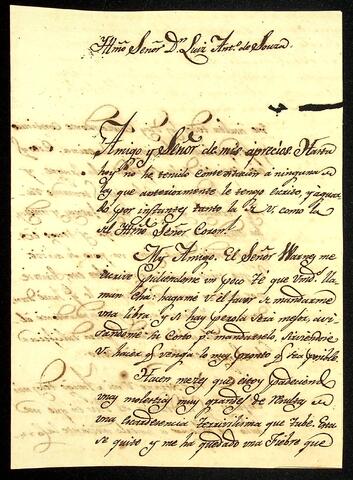 Illmo Señor Dn Luiz Anto de Souza.
Amigo y Señor de mis aprecios Hasta
hoy no he tenido contestacion á ninguna de
las que anteriormente le tengo escrito, y aguar
do por instantes tanto la de V. como la
del Illmo Señor Coronl.
My Amigo. El Señor me
escrive pidiendome un poco Té que Vmds. lla
man Chá: hagame V. el favor de mandarme
una libra, y si hay perola será mejor, avi
sandome su costo pa mandarselo, sirviendose
V. hacer qe venga lo mas pronto qe sea posible.
Hacen mes y que estoy padeciendo
unas molestias muy grandes de resultas de
una terrivilisima que tube. Esta
se quitó y me ha quedado una Fiebre que